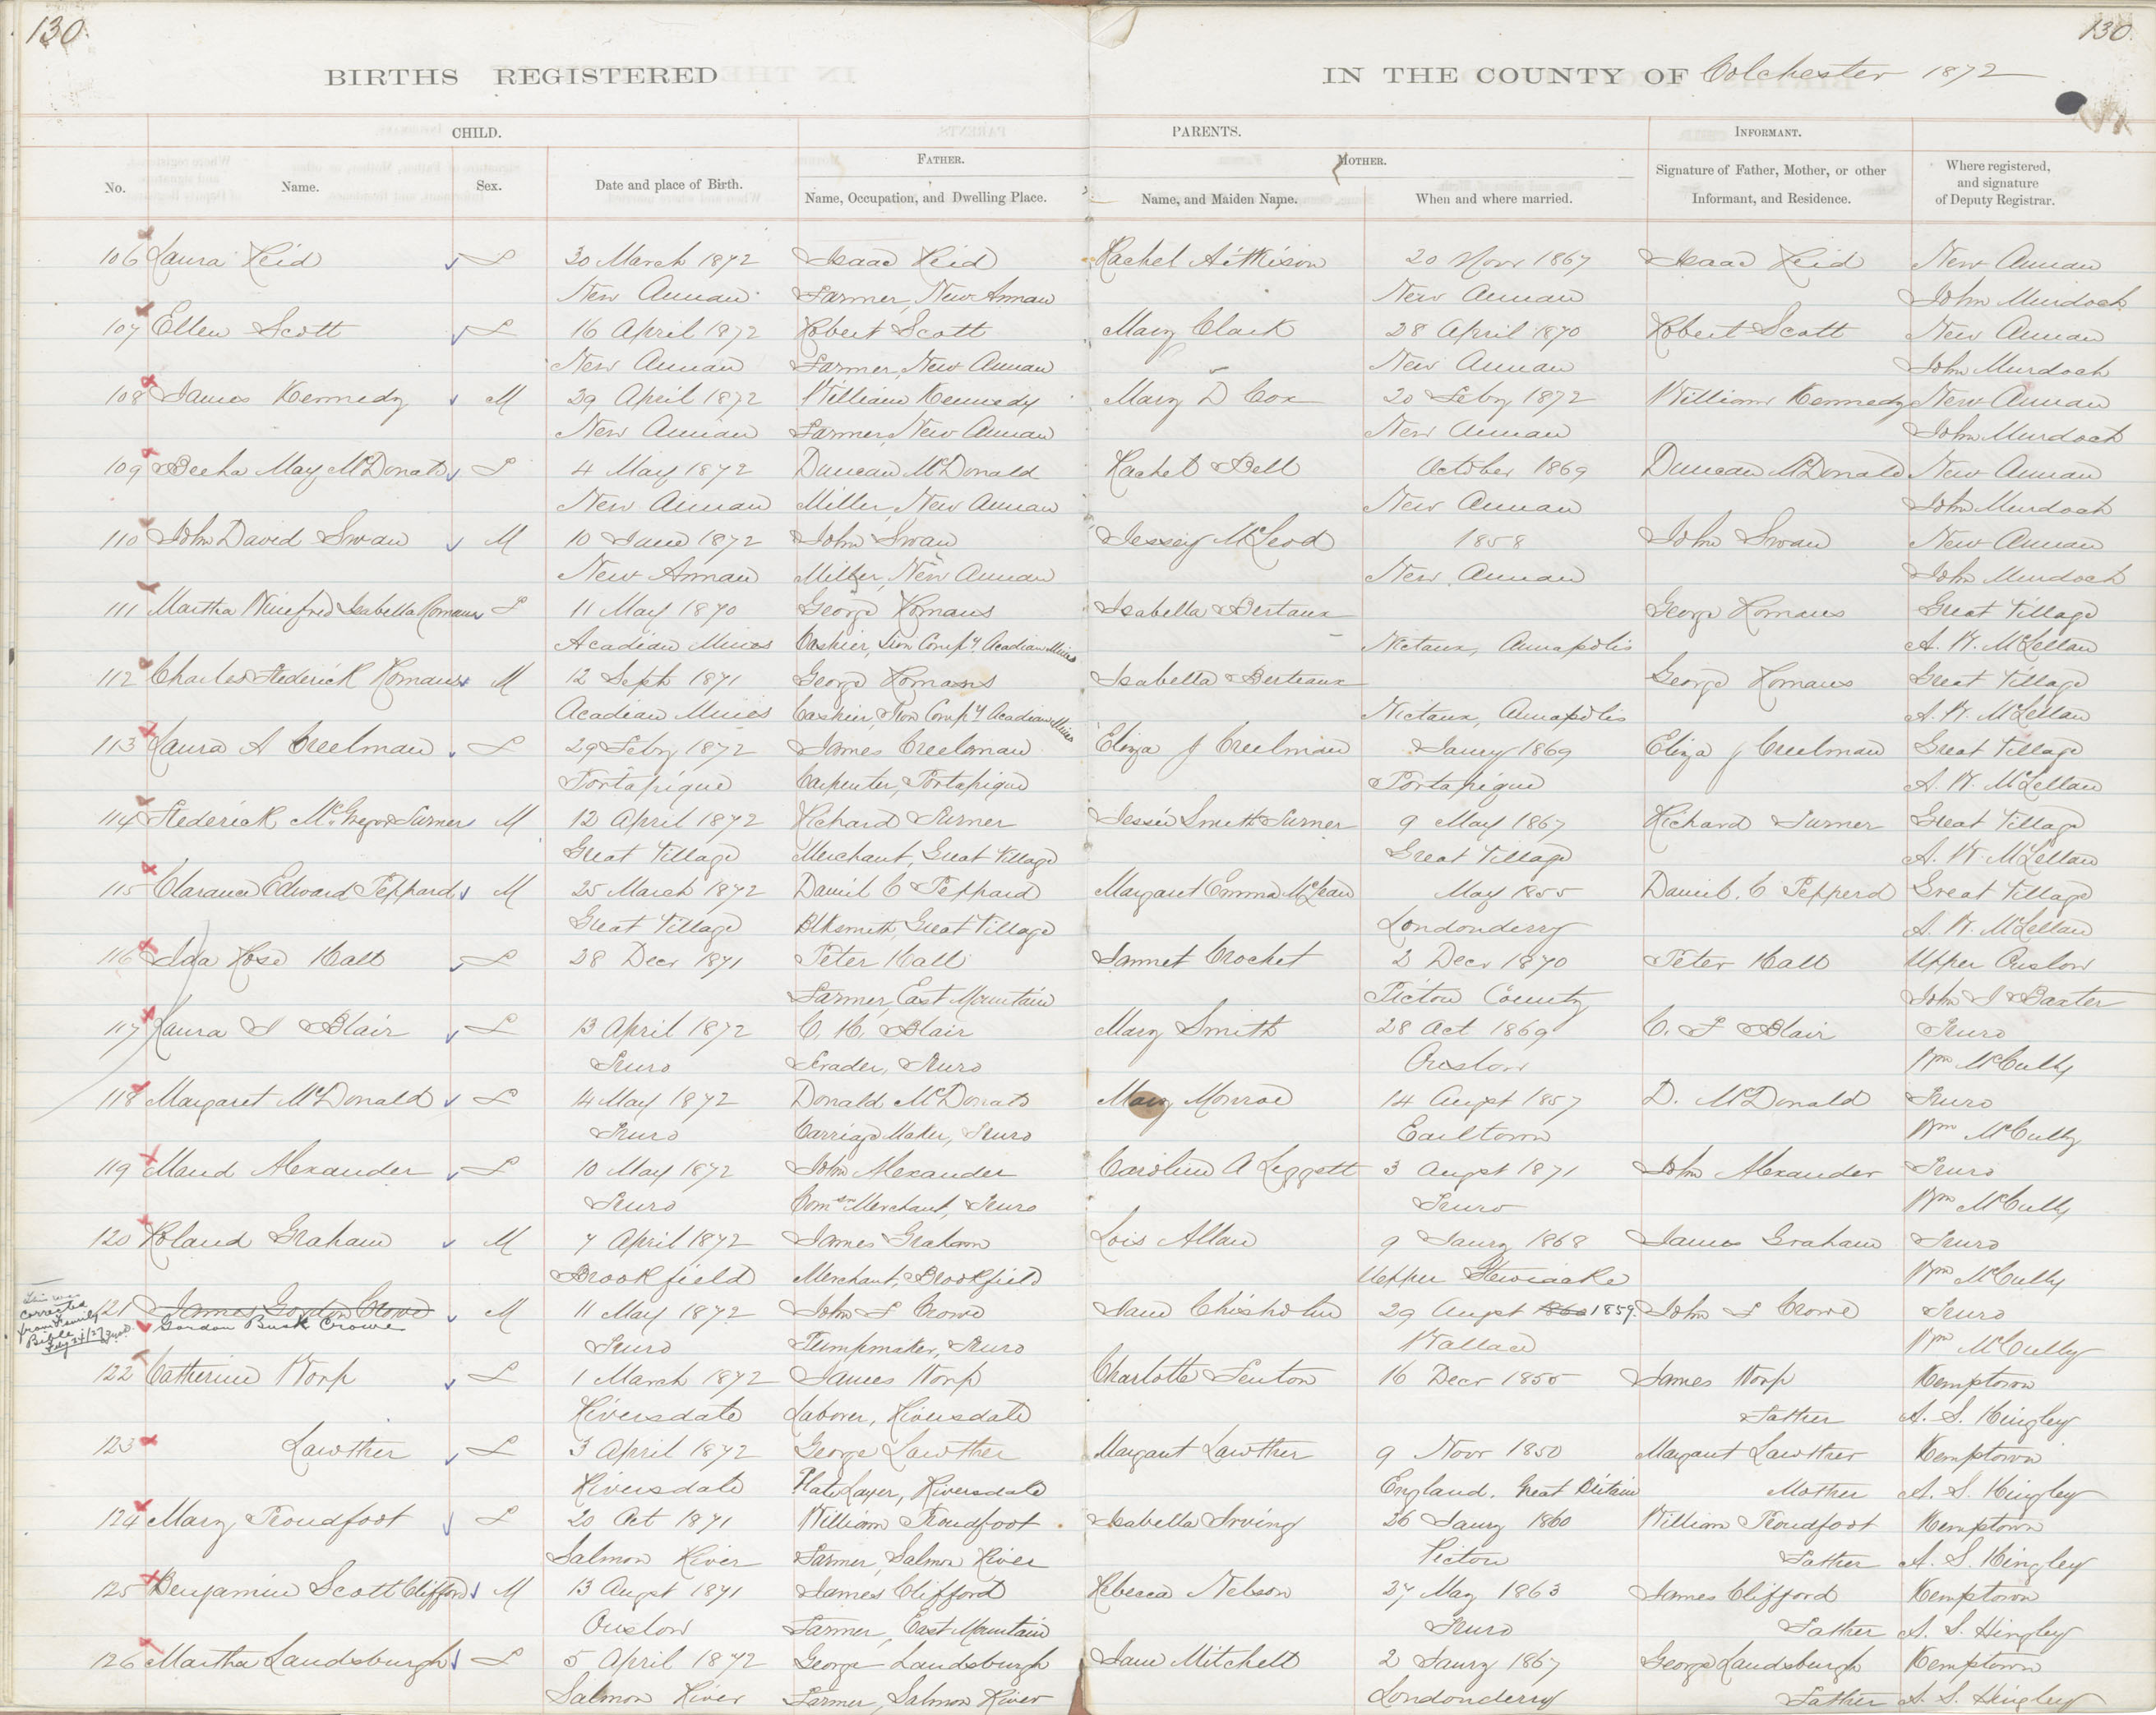 130.
130.
BIRTHS REGISTERED
IN THE COUNTY OF Colchester 1872
CHILD.
PARENTS.
INFORMANT.
FATHER.
MOTHER.
No.
Name.
Sex.
Date and place of Birth.
Name, Occupation, and Dwelling Place.
Name, and Maiden Name.
When and where married.
Signature of Father, Mother, or other
Informant, and Residence.
Where registered,
and signature
of Deputy Registrar.
106 Laura Reid F 30 March 1872 Isaac Reid Rachel Aitkison 20 Novr 1867 Isaac Reid New Annan
New Annan Farmer, New Annan New Annan John Murdoch
107 Ellen Scott F 16 April 1872 Robert Scott Mary Clark 28 April 1870 Robert Scott New Annan
New Annan Farmer, New Annan New Annan John Murdoch
108 James Kennedy M 29 April 1872 William Kennedy Mary D Cox 20 Feby 1872 William Kennedy New Annan
New Annan Farmer, New Annan New Annan John Murdoch
109 May McDonald F 4 May 1872 Duncan McDonald Rachel Bell October 1869 Duncan McDonald New Annan
New Annan Miller, New Annan New Annan John Murdoch
110 John David Swan M 10 June 1872 John Swan Jessey McLeod 1858 John Swan New Annan
New Annan Miller, New Annan New Annan John Murdoch
111 Martha Winefred Isabella Romans F 11 May 1870 George Romans Isabella Bertaux George Romans Great Village
Acadian Mines Cashier, Iron Compy. Acadian Mines Nictaux, Annapolis A. W. McLellan
112 Charles Frederick Romans M 12 Sept 1871 George Romans Isabella Berteaux George Romans Great Village
Acadian Mines Cashier, Iron Compy Acadian Mines Nictaux, Annapolis A. W. McLellan
113 Laura A Creelman F 29 Feby 1872 James Creelman Eliza J Creelman Jany 1869 Eliza J Creelman Great Village
Portapique Carpenter, Portapique Portapique A. W. McLellan
114 Frederick McGregor Turner M 12 April 1872 Richard Turner Jessie Smith Turner 9 May 1867 Richard Turner Great Village
Great Village Merchant, Great Village Great Village A. W. McLellan
115 Clarance Edward Peppard M 25 March 1872 Daniel C Peppard Margaret Emma McLean May 1855 Daniel. C Pepperd Great Village
Great Village Blksmith, Great Village Londonderry A. W. McLellan
116 Ida Rose Hall F 28 Decr 1871 Peter Hall Jannet Crocket 2 Decr 1870 Peter Hall Upper Onslow
Farmer, East Mountain Pictou County John I Baxter
117 Laura I Blair F 13 April 1872 C. H. Blair Mary Smith 28 Oct 1869 C. F Blair Truro
Truro Trader, Truro Onslow Wm McCully
118 Margaret McDonald F 14 May 1872 Donald McDonald Mary Monroe 14 Augst 1857 D. McDonald Truro
Truro Carriage Maker, Truro Earltown Wm McCully
119 Maud Alexander F 10 May 1872 John Alexander Caroline A Leggett 3 Augst 1871 John Alexander Truro
Truro Comsn Merchant, Truro Truro Wm McCully
120 Roland Graham M 7 April 1872 James Graham Lois Allan 9 Jany 1868 James Graham Truro
Brookfield Merchant, Brookfield Upper Stewiacke Wm McCully
This was
corrected
from Family
Bible
121 James Gordon Crowe M 11 May 1872 John F Crowe Jane Chisholm 29 Augst 1860 1859. John F Crowe Truro
Gordon Busk Crowe
Truro Pumpmaker, Truro Wallace Wm McCully
122 Catherine Worp F 1 March 1872 James Worp Charlotte Fenton 16 Decr 1855 James Worp Kemptown
Riversdale Laborer, Riversdale Father A. S. Hingley
123 Lawther F 3 April 1872 George Lawther Margaret Lawther 9 Novr 1850 Margaret Lawther Kemptown
Riversdale Plate Layer, Riversdale England. Great Britain Mother A. S. Hingley
124 Mary Proudfoot F 20 Oct 1871 William Proudfoot Isabella Irving 26 Jany 1860 William Proudfoot Kemptown
Salmon River Farmer, Salmon River Pictou Father A. S. Hingley
125 Benjamin Scott Clifford M 13 Augst 1871 James Clifford Rebecca Nelson 27 May 1863 James Clifford Kemptown
Onslow Farmer, East Mountain Truro Father A. S. Hingley
126 Martha Landsburgh F 5 April 1872 George Landsburgh Jane Mitchell 2 Jany 1867 George Landsburgh Kemptown
Salmon River Farmer, Salmon River Londonderry Father A. S. Hingley